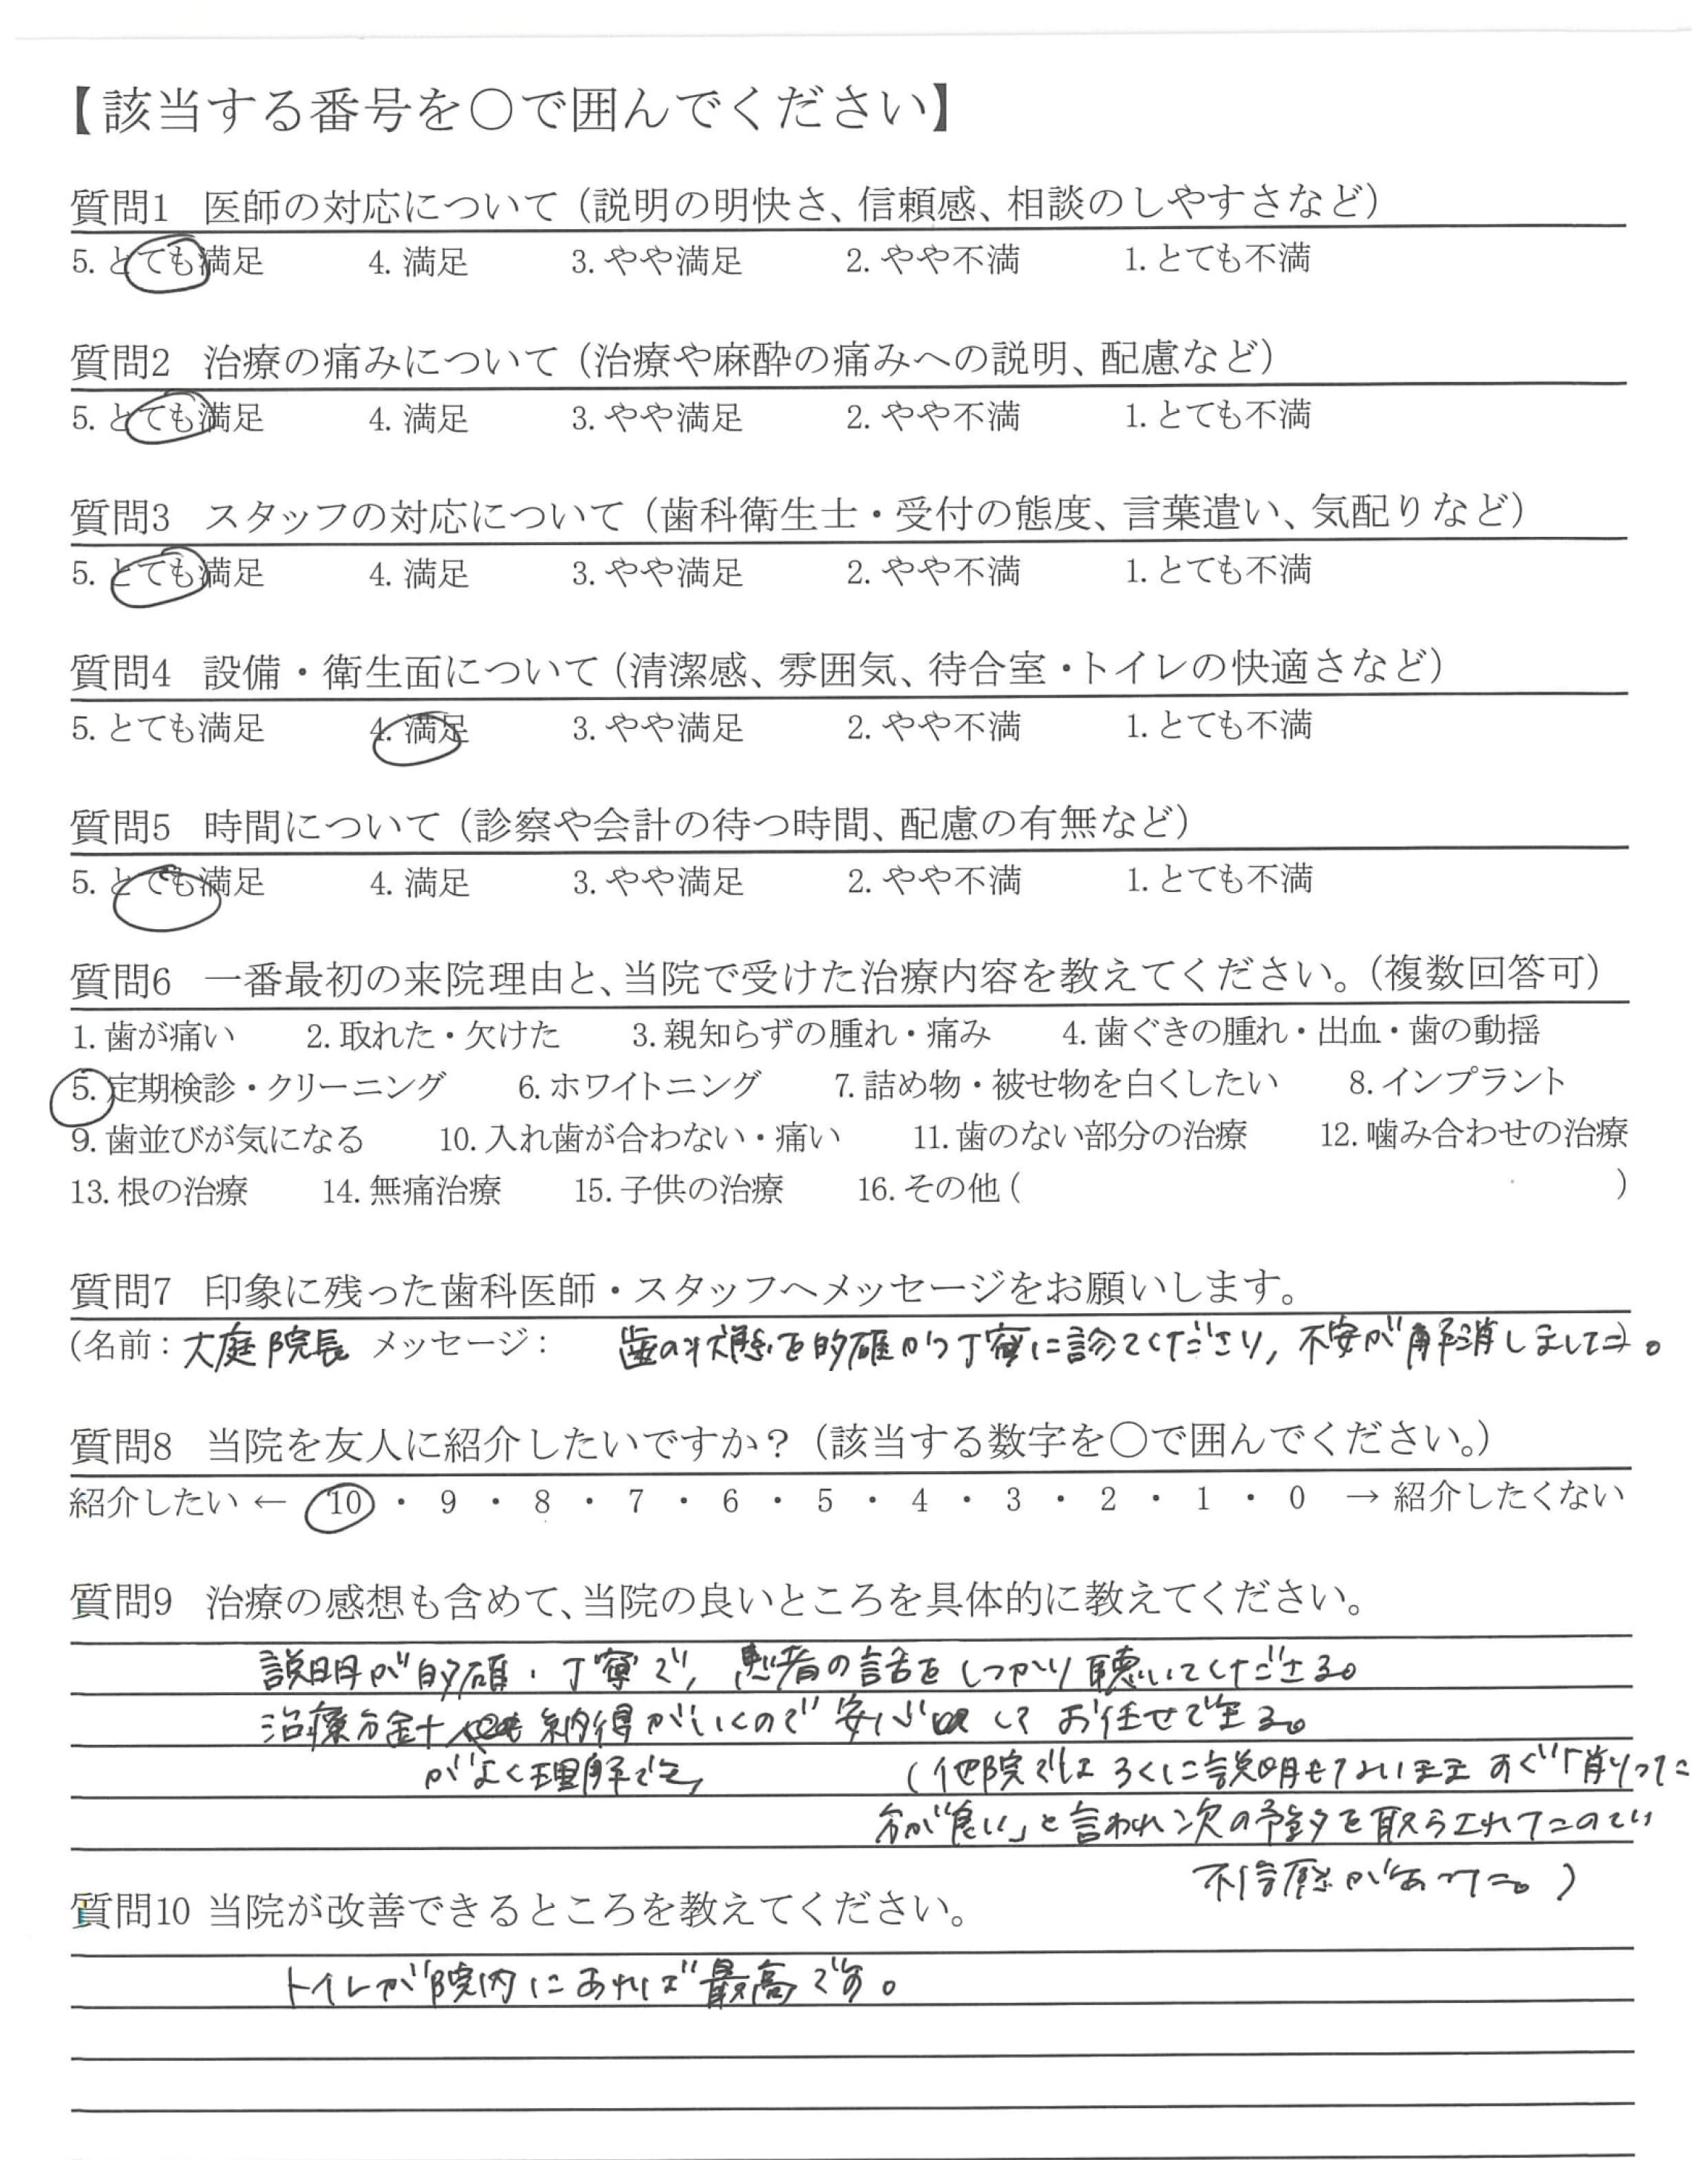 【該当する番号を○で囲んでください】
質問1 医師の対応について（説明の明快さ、信頼感、相談のしやすさなど）
5. とても満足 4. 満足 3. やや満足 2. やや不満 1. とても不満
質問2 治療の痛みについて（治療や麻酔の痛みへの説明、配慮など）
5. とても満足 4. 満足 3. やや満足 2. やや不満 1. とても不満
質問3 スタッフの対応について（歯科衛生士・受付の態度、言葉遣い、気配りなど）
5. とても満足 4. 満足 3. やや満足 2. やや不満 1. とても不満
質問4 設備・衛生面について（清潔感、雰囲気、待合室・トイレの快適さなど）
5. とても満足 4. 満足 3. やや満足 2. やや不満 1. とても不満
質問5 時間について（診察や会計の待つ時間、配慮の有無など）
5. とても満足 4. 満足 3. やや満足 2. やや不満 1. とても不満
質問6 一番最初の来院理由と、当院で受けた治療内容を教えてください。（複数回答可）
1. 歯が痛い 2. 取れた・欠けた 3. 親知らずの腫れ・痛み 4. 歯ぐきの腫れ・出血・歯の動揺
5. 定期検診・クリーニング 6. ホワイトニング 7. 詰め物・被せ物を白くしたい 8. インプラント
9. 歯並びが気になる 10. 入れ歯が合わない・痛い 11. 歯のない部分の治療 12. 噛み合わせの治療
13. 根の治療 14. 無痛治療 15. 子供の治療 16. その他（ ）
質問7 印象に残った歯科医師・スタッフへメッセージをお願いします。
（名前：大庭院長 メッセージ： 歯の状態を的確かつ丁寧に診てくださり, 不安が解消しました）。
質問8 当院を友人に紹介したいですか？（該当する数字を○で囲んでください。）
紹介したい ← 10 ・ 9 ・ 8 ・ 7 ・ 6 ・ 5 ・ 4 ・ 3 ・ 2 ・ 1 ・ 0 → 紹介したくない
質問9 治療の感想も含めて、当院の良いところを具体的に教えてください。
説明が的確・丁寧で, 患者の話をしっかり聴いてくださる。
治療方針 納得がいくので安心して お任せできる。
がよく理解でき,
（他院ではろくに説明もないまますぐ「削った
方が良い」と言われ次の予約を取らされてたので
不信感があった。）
質問10 当院が改善できるところを教えてください。
トイレが院内にあれば最高です。